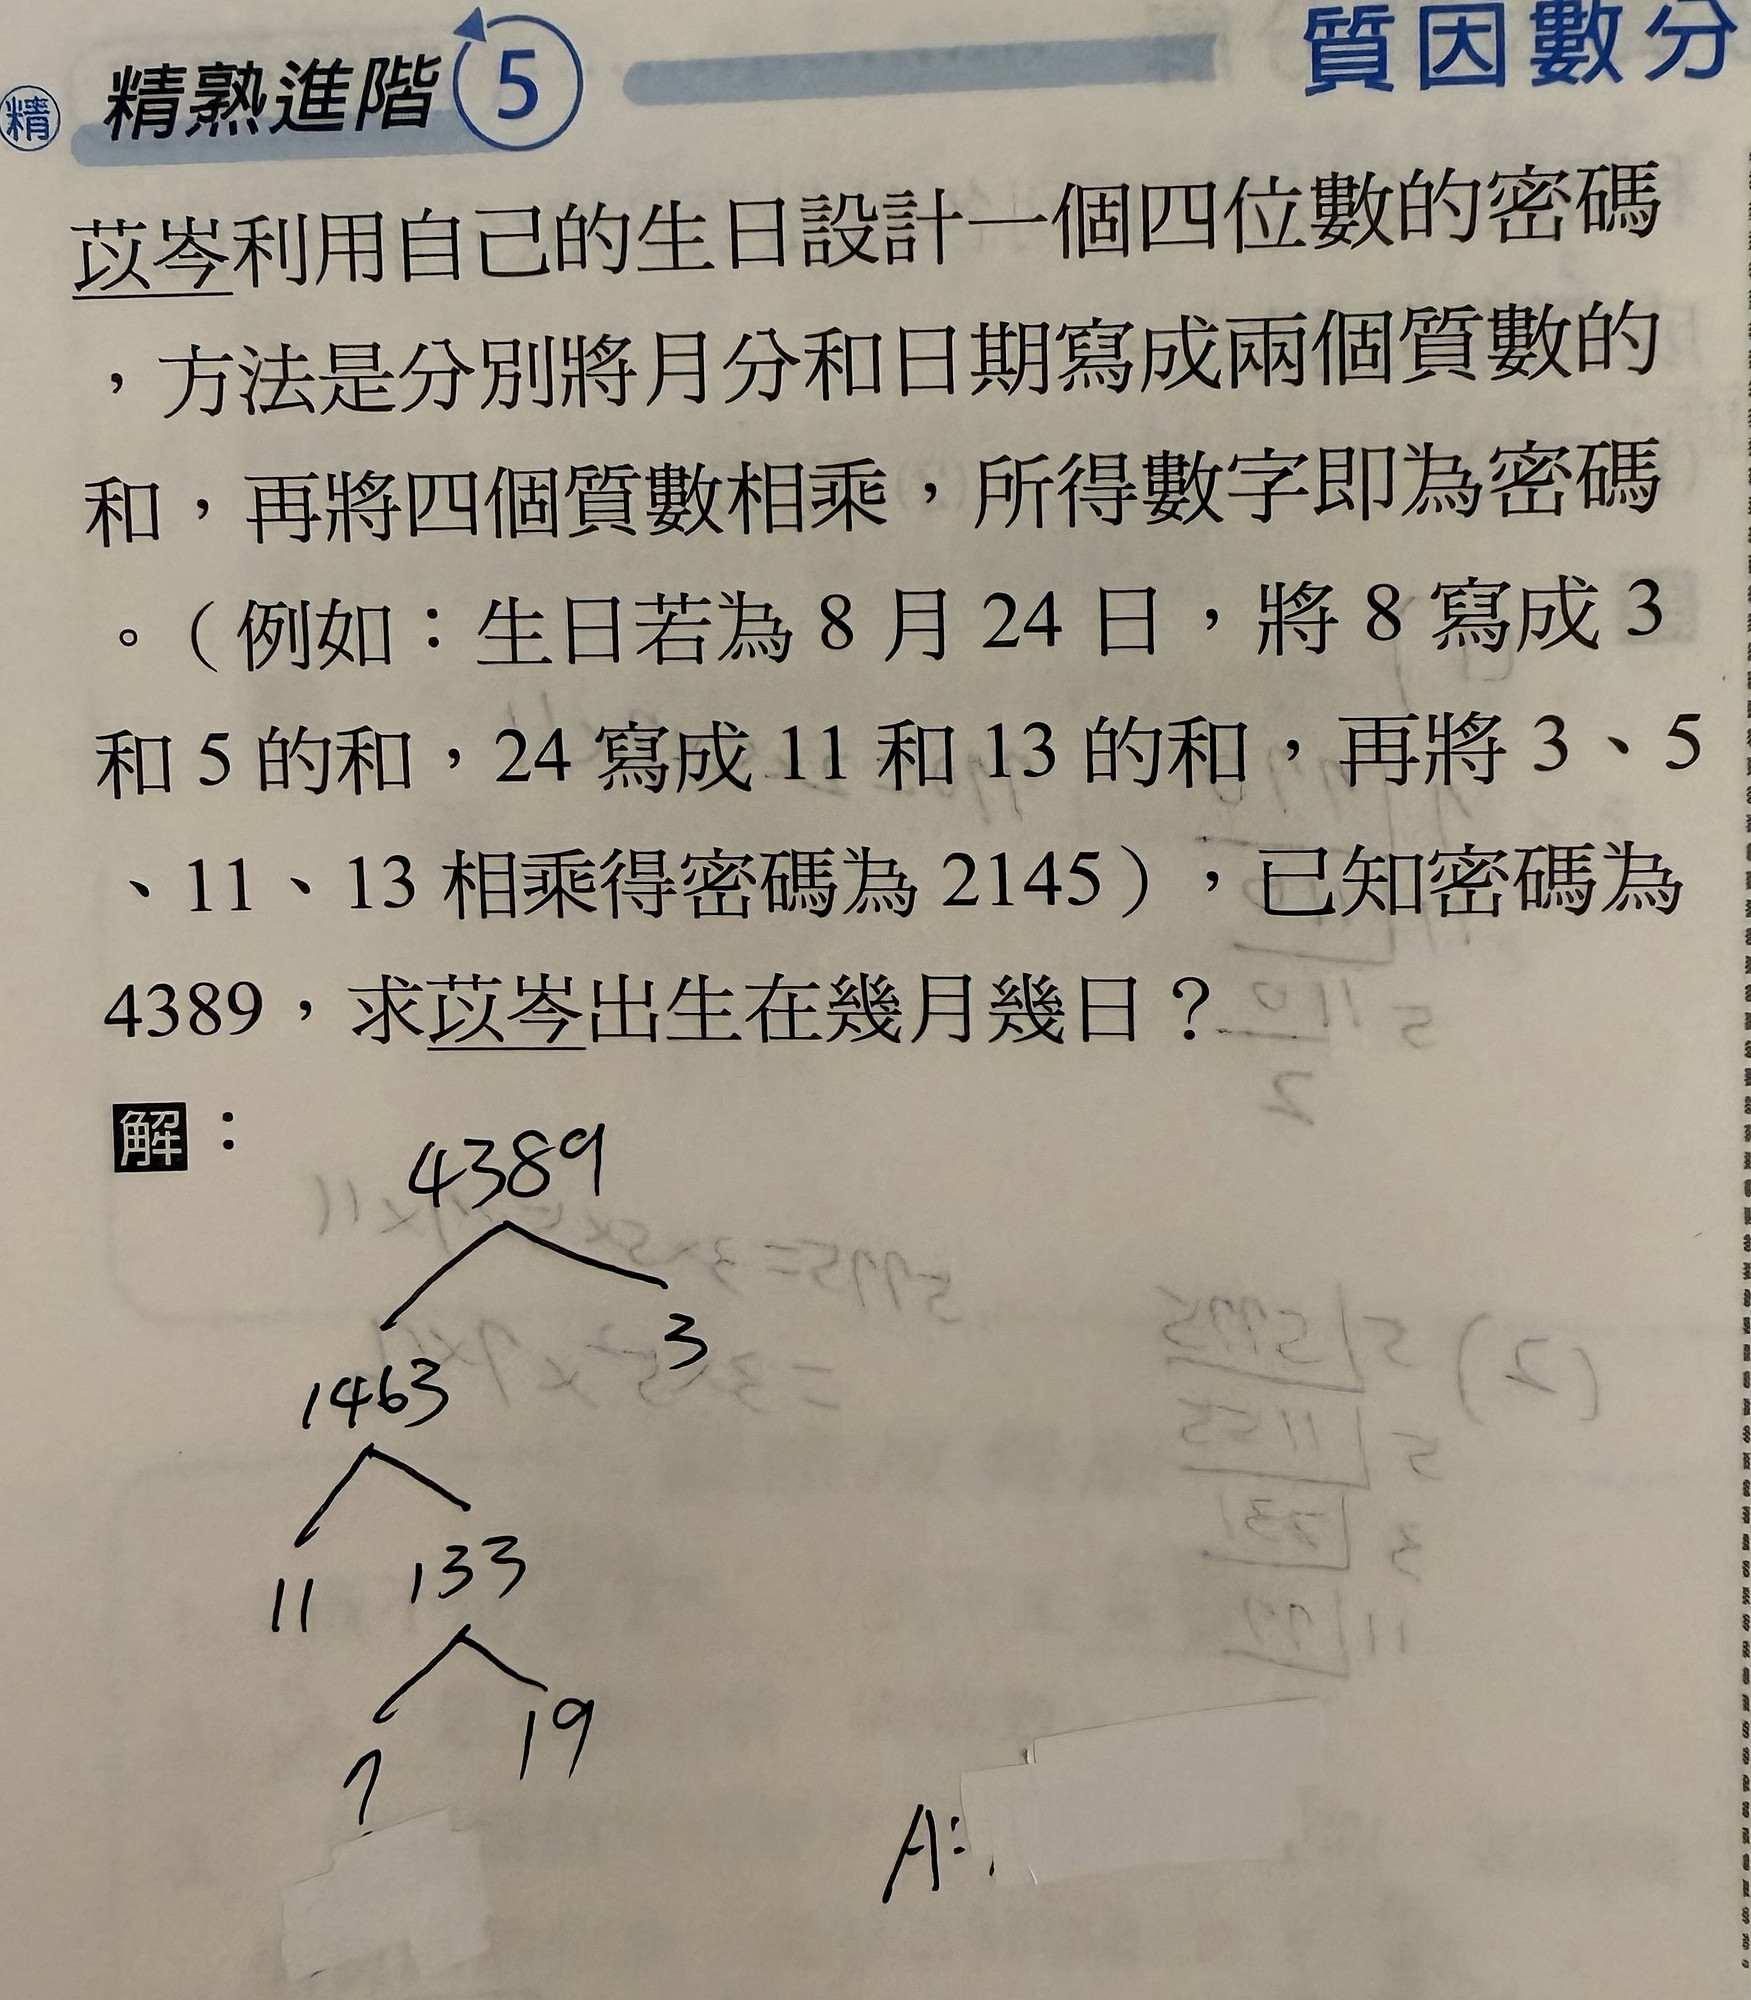 質因數分
精 精熟進階 5
苡岑利用自己的生日設計一個四位數的密碼
，方法是分別將月分和日期寫成兩個質數的
和，再將四個質數相乘，所得數字即為密碼
。（例如：生日若為 8 月 24 日，將 8 寫成 3
和 5 的和，24 寫成 11 和 13 的和，再將 3、5
、11、13 相乘得密碼為 2145），已知密碼為
4389，求苡岑出生在幾月幾日？
解：
4389
1463 3
11 133
7 19
A: